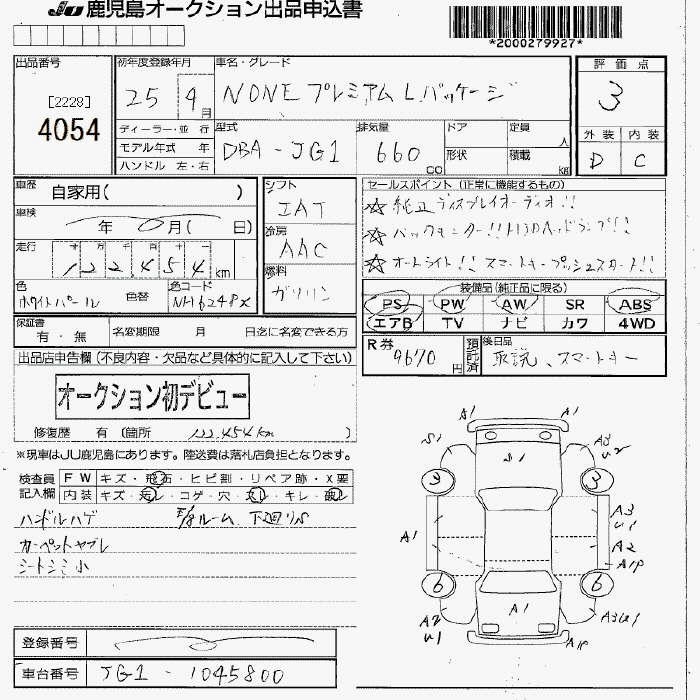 JU 鹿児島オークション出品申込書
*2000279927*
出品番号
[2228]
4054
初年度登録年月
25 4月
車名・グレード
NONE プレミアム L.パッケージ
評価点
3
外装 内装
D C
ディーラー・並行
モデル年式 年
ハンドル 左・右
型式
DBA-JG1
排気量
660 cc
ドア
形状
定員 人
積載 kg
車歴 自家用( )
車検 年 0月( 日)
走行 十万 万 千 百 十 一
122,454 km
色
ホワイトパール
色替
色コード
NH624BX
シフト
IAT
冷房
AAC
燃料
ガソリン
セールスポイント (正常に機能するもの)
☆ 純正ディスプレイオーディオ!!
☆ バックモニター!!HIDヘッドランプ!!
☆ オートライト!! スマートキープッシュスタート!!
装備品(純正品に限る)
PS PW AW SR ABS
エアB TV ナビ カワ 4WD
R券 9670円
預託済
後日品
取説、スマートキー
保証書
有・無
名変期限 月 日迄に名変できる方
出品店申告欄(不良内容・欠品など具体的に記入して下さい)
オークション初デビュー
修復歴 有(箇所 122,454km )
※現車はJU鹿児島にあります。陸送費は落札店負担となります。
検査員記入欄
FW キズ・飛石・ヒビ割・リペア跡・X要
内装 キズ・汚レ・コゲ・穴・スレ・キレ・破レ
ハンドルハゲ ルーム 下廻りS
カーペットヤブレ
シートシミ小
登録番号
車台番号 JG1-1045800
A1 A1
S1 S1 A3 U2
3 3
A1 A3 U1
A2
A1P
6 6
A2 U1 A1 A3U1
A1P